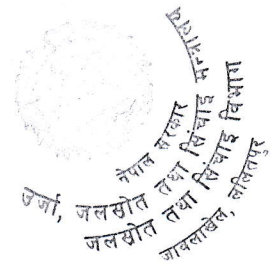 नेपाल सरकार
उर्जा, जलस्रोत तथा सिंचाइ मन्त्रालय
जलस्रोत तथा सिंचाइ विभाग
जावलाखेल, ललितपुर